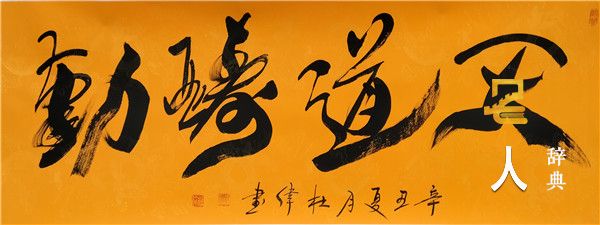 天道醻勤
辛丑夏月杜偉書
人
辞典